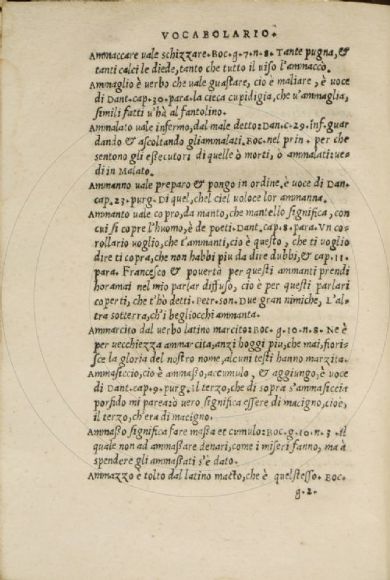 VOCABOLARIO.
Ammaccare vale schizzare. Boc. g. 7. n. 8. Tante pugna, &
tanti calci le diede, tanto che tutto il viso l'ammaccò.
Ammaglio è verbo che vale guastare, cio è maliare, è voce
di Dant. cap. 30. para. la cieca cupidigia, che u'ammaglia,
simili fatti u'hà al fantolino.
Ammalato vale infermo, dal male detto: Dan. c. 29. inf. guar
dando & ascoltando gliammalati. Boc. nel prin. per che
sentono gli essecutori di quelle ò morti, ò ammalati: ue-
di in Malato.
Ammanno vale preparo & pongo in ordine, è voce di Dan.
cap. 23. purg. Di quel, chel ciel veloce lor ammanna.
Ammanto vale copro, da manto, che mantello significa, con
cui si copre l'huomo, è de poeti. Dant. cap. 8. para. Vn co
rollario voglio, che t'ammanti, cio è questo, che ti voglio
dire ti copra, che non habbi piu da dire dubbi, & cap. 11.
para. Francesco & pouertà per questi ammanti prendi
horamai nel mio parlar diffuso, cio è per questi parlari
coperti, che t'ho detti. Petr. son. Due gran nimiche, L'al-
tra sotterra, ch'i begliocchi ammanta.
Ammarcito dal verbo latino marcito: Boc. g. 10. n. 8. Ne è
per vecchiezza ammarcita, anzi hoggi piu, che mai, fiori-
sce la gloria del nostro nome, alcuni testi hanno marzita.
Ammasiccio, cio è ammasso, accumulo, & aggiungo, è voce
di Dant. cap. 9. purg. il terzo, che di sopra s'ammasiccia
porfido mi pareaìo vero significa essere di macigno, cioè,
il terzo, ch'era di macigno.
Ammasso significa fare massa et cumulo: Boc. g. 10. n. 3. il
quale non ad ammassare denari, come i miseri fanno, ma à
spendere gli ammassati s'è dato.
Ammazzo è tolto dal latino macto, che è quelstesso. Boc.
g. 2.